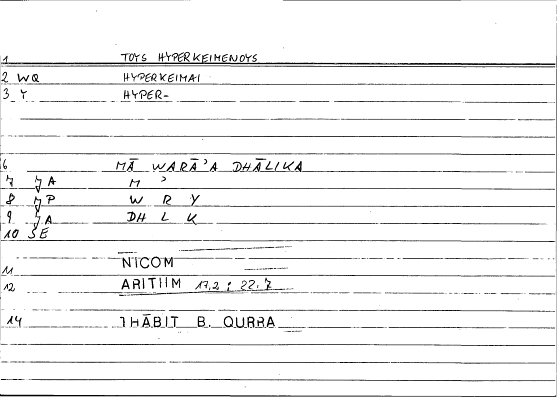 1 TOYS HYPERKEIMENOYS
2 WQ HYPERKEIMAI
3 Y HYPER-
6 MĀ WARĀʾA DHĀLIKA
7 A M ʾ
8 P W R Y
9 A DH L K
10 SE
11 NICOM
12 ARITIIM 17,2 : 22.7
14 THĀBIT B. QURRA